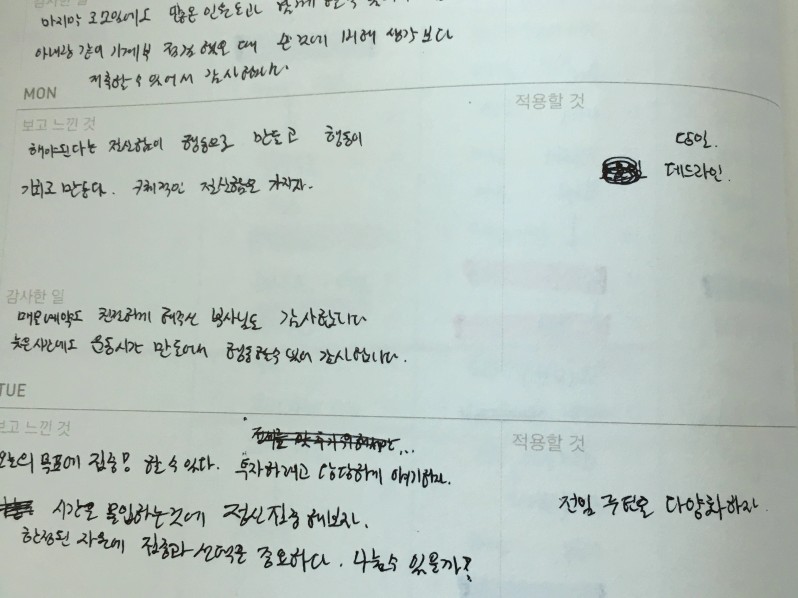 감사한 일
마지막 모임에도 많은 인원
아내랑 같이 가계부 점검 했을 때 손 대비 생각보다
저축할 수 있어서 감사합니다.
MON
보고 느낀 것
적용할 것
해야된다는 절실함이 행동으로 만들고 행동이
당일.
데드라인.
기회로 만든다. 구체적인 절실함을 가지자.
감사한 일
친절하게 해주신 감사합니다
늦은시간에도 운동시간 만들어내 행동할수 있어 감사합니다.
TUE
보고 느낀 것
적용할 것
오늘의 목표에 집중 할 수 있다. 투자하려고 당당하게 얘기하자.
시간을 몰입하는것에 정신집중 해보자.
전임 주변을 다양화하자
한정된 자원에 집중과 선택은 중요하다. 나눌수 있을까?